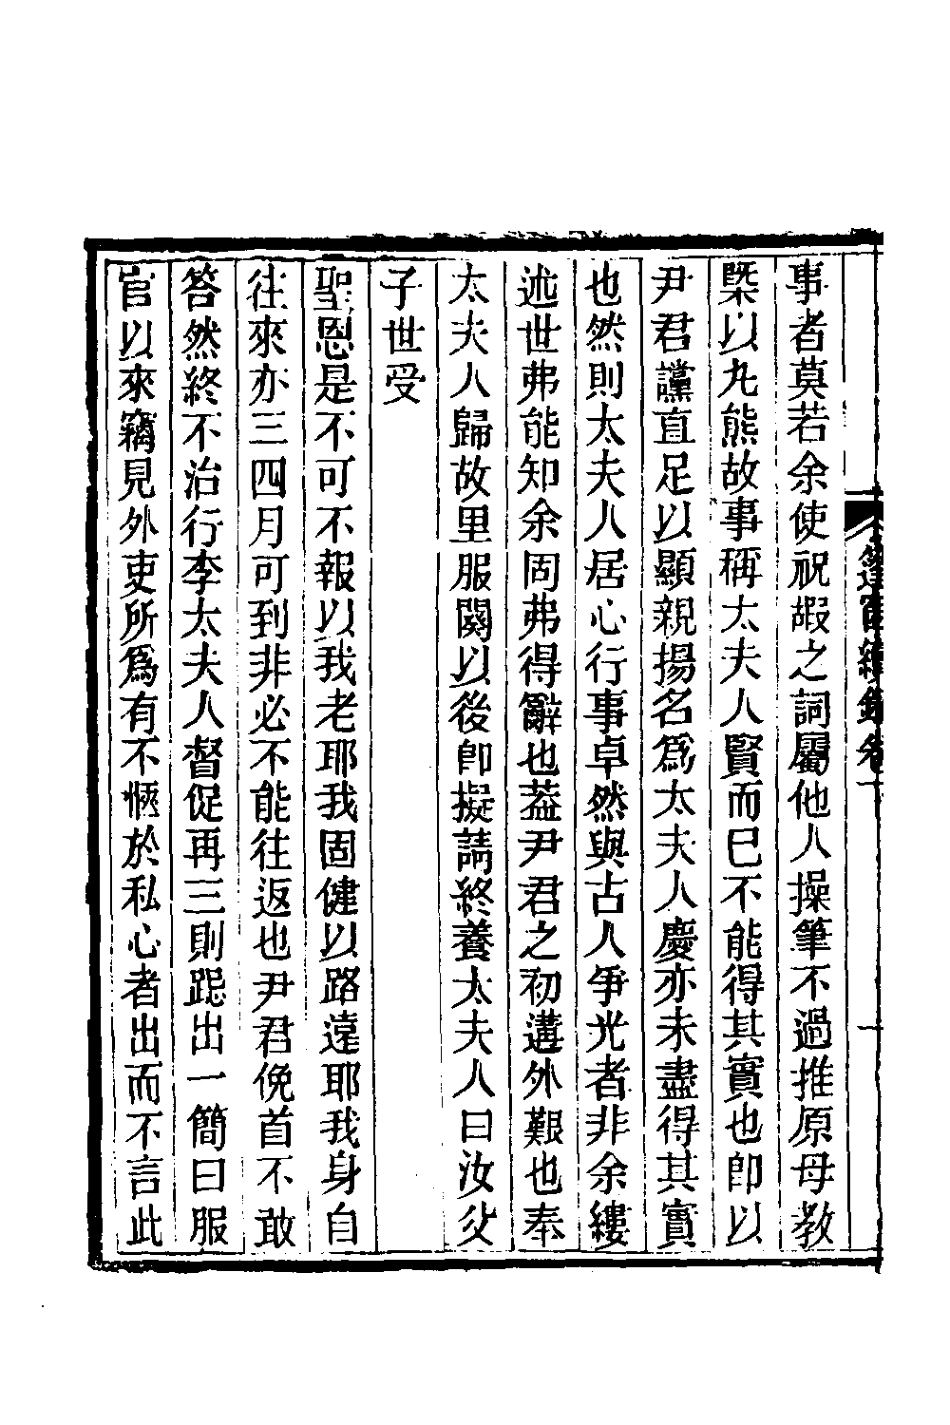 事者莫若余使祝嘏之詞屬他人操筆不過推原母教
槩以丸熊故事稱太夫人賢而巳不能得其實也卽以
尹君讜直足以顯親揚名爲太夫人慶亦未盡得其實
也然則太夫人居心行事卓然與古人爭光者非余縷
述世弗能知余固弗得辭也葢尹君之初遘外艱也奉
太夫人歸故里服闋以後卽擬請終養太夫人曰汝父
子世受
聖恩是不可不報以我老耶我固健以路遠耶我身自
往來亦三四月可到非必不能往返也尹君俛首不敢
答然終不治行李太夫人督促再三則跽出一簡曰服
官以來竊見外吏所爲有不愜於私心者出而不言此